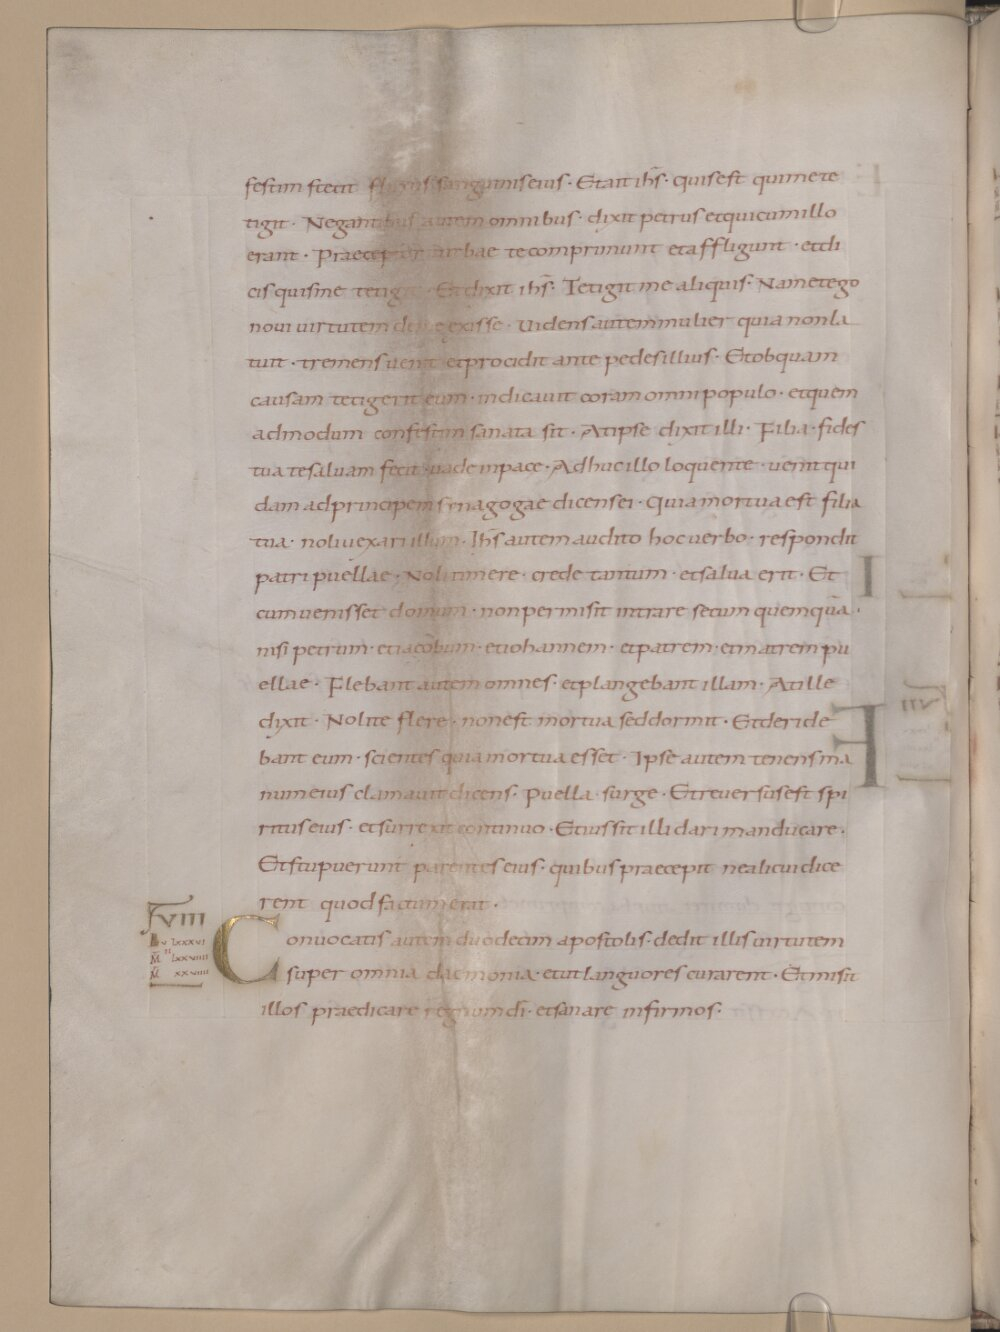 festim stetit fluxus sanguinis eius · Et ait ihs̄ · quis est qui me te
tigit · Negantibus autem omnibus · dixit petrus et qui cum illo
erant · Praeceptor turbae te comprimunt et affligunt · et di
cis quis me tetigit · Et dixit ihs̄ · Tetigit me aliquis · Nam et ego
noui uirtutem de me exisse · Uidens autem mulier quia non la
tuit · tremens uenit et procidit ante pedes illius · Et ob quam
causam tetigerit eum · indicauit coram omni populo · et quem
admodum confestim sanata sit · At ipse dixit illi · Filia · fides
tua te saluam fecit · uade in pace · Adhuc illo loquente · uenit qui
dam ad principem synagogae dicens ei · Quia mortua est filia
tua · noli uexari illum · Ihs̄ autem audito hoc uerbo · respondit
patri puellae · Noli timere · crede tantum · et salua erit · Et
cum uenisset domum · non permisit intrare secum quemquā ·
nisi petrum · et iacobum · et iohannem · et patrem · et matrem pu
ellae · Flebant autem omnes · et plangebant illam · At ille
dixit · Nolite flere · non est mortua sed dormit · Et deride
bant eum · scientes quia mortua esset · Ipse autem tenens ma
num eius clamauit dicens · Puella surge · Et reuersus est spi
ritus eius · et surrexit continuo · Et iussit illi dari manducare ·
Et stupuerunt parentes eius · quibus praecepit ne alicui dice
rent quod factum erat ·
VIII
LV LXXXVI
M̄ LXXVIIII
M̄ XXVIIII
Conuocatis autem duodecim apostolis · dedit illis uirtutem
super omnia daemonia · et ut languores curarent · Et misit
illos praedicare regnum dī · et sanare infirmos ·